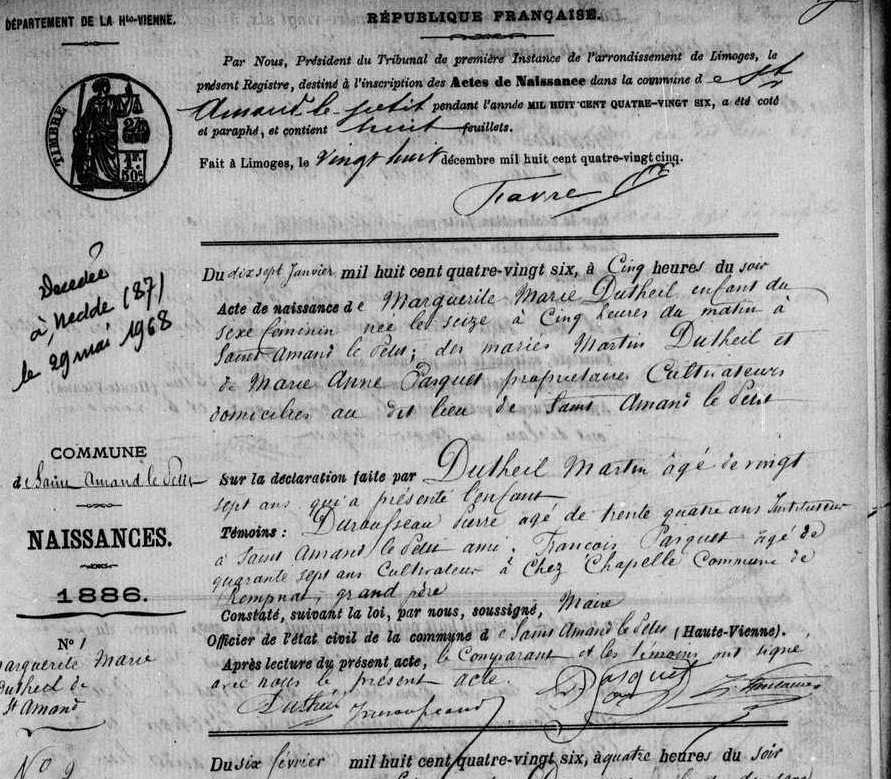 DÉPARTEMENT DE LA Hte-VIENNE.
RÉPUBLIQUE FRANÇAISE.
Par Nous, Président du Tribunal de première Instance de l'arrondissement de Limoges, le
présent Registre, destiné à l'inscription des Actes de Naissance dans la commune d e St
Amand le petit pendant l'année MIL HUIT CENT QUATRE-VINGT SIX, a été coté
et paraphé, et contient huit feuillets.
Fait à Limoges, le vingt huit décembre mil huit cent quatre-vingt cinq.
TIMBRE
1F.
50c
Favre
Decedée
à Nedde (87)
le 29 mai 1968
Du dix sept Janvier mil huit cent quatre-vingt six, à Cinq heures du soir
Acte de naissance de Marguerite Marie Dutheil enfant du
sexe feminin née le seize à Cinq heures du matin à
Saint Amand le Petit; des mariés Martin Dutheil et
de Marie Anne Pasquet propriétaires Cultivateurs
domiciliés au dit lieu de Saint Amand le Petit
COMMUNE
de Saint Amand le Petit
NAISSANCES.
1886.
Sur la déclaration faite par Dutheil Martin âgé de vingt
sept ans qui a présenté l'enfant
Témoins : Durousseau Pierre âgé de trente quatre ans Instituteur
à Saint Amand le Petit ami. François Pasquet âgé de
quarante sept ans Cultivateur à Chez Chapelle Commune de
Rempnat, grand père
Constaté, suivant la loi, par nous, soussigné, Maire
Officier de l'état civil de la commune d e Saint Amand le Petit (Haute-Vienne).
Après lecture du présent acte, le Comparant et les témoins ont signé
avec nous le présent acte.
Dutheil Durousseaud Pasquet
No 1
Marguerite Marie
Dutheil de
St Amand
No 2
Du six février mil huit cent quatre-vingt six, à quatre heures du soir